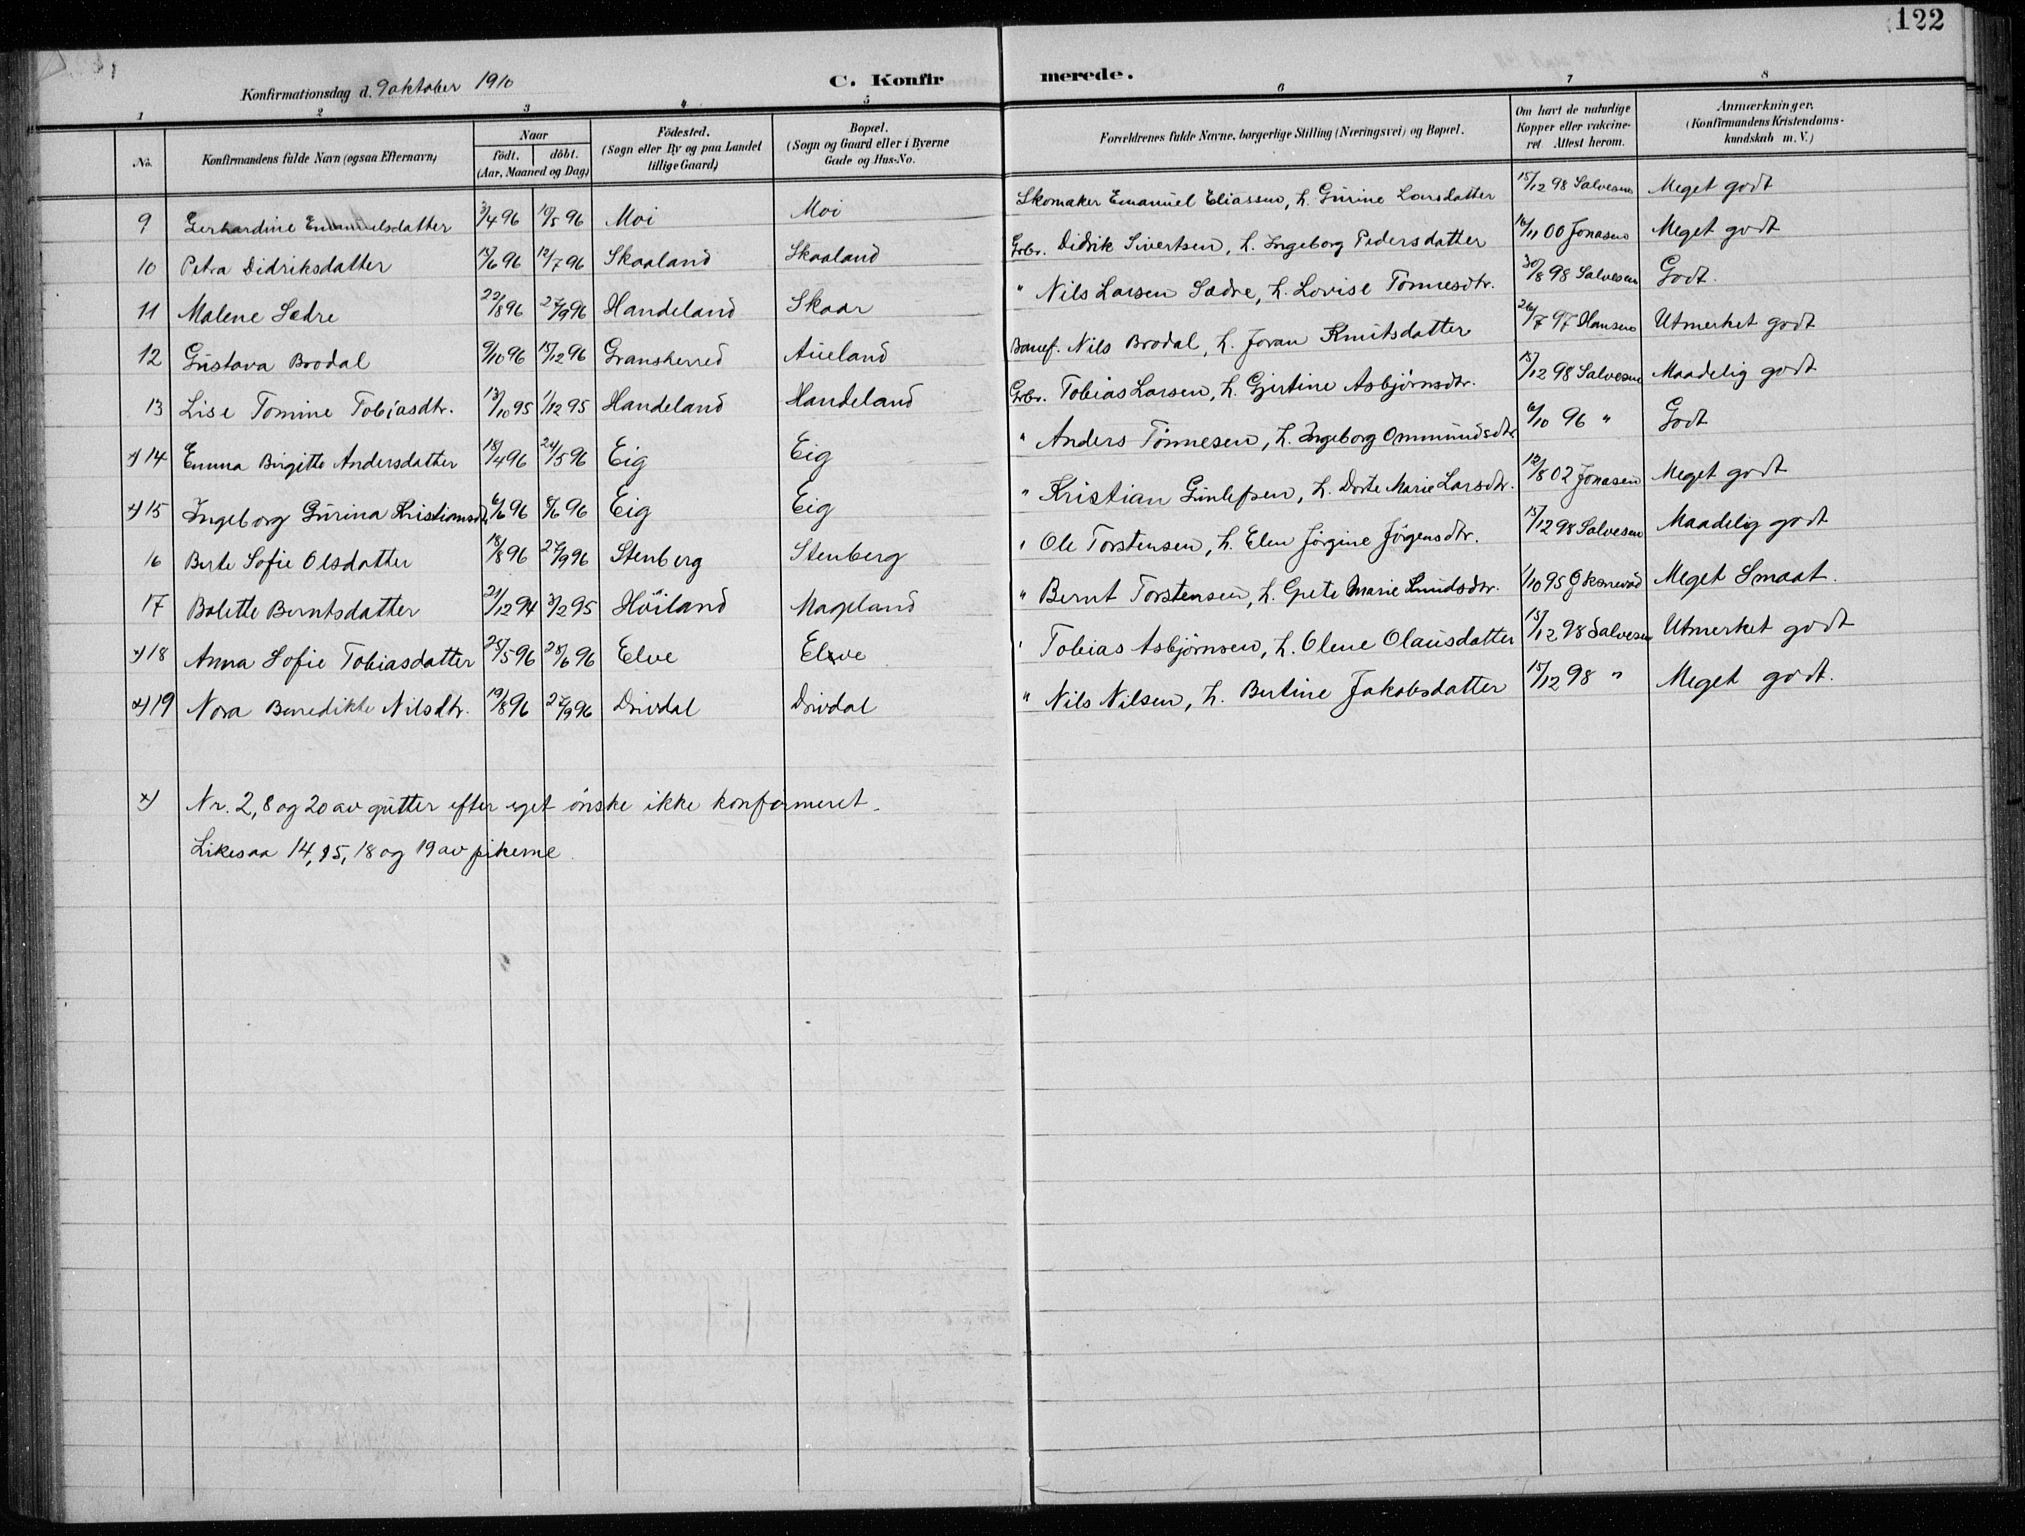 122
Konfirmationsdag d. 9 oktober 1910 C. Konfir merede.
1 2 3 4 5 6 7 8
No. Konfirmandens fulde Navn (ogsaa Efternavn) Naar födt. döbt. (Aar, Maaned og Dag) Födested. (Sogn eller By og paa Landet tillige Gaard) Bopæl. (Sogn og Gaard eller i Byerne Gade og Hus-No. Forældrenes fulde Navne, borgerlige Stilling (Næringsvei) og Bopæl. Om havt de naturlige Kopper eller vakcineret Attest herom. Anmærkninger. (Konfirmandens Kristendomskundskab m. V.)
9 Gerhardine Emanuelsdatter 3/4 96 /5 96 Moi Moi Skomaker Emanuel Eliassen, h. Gurine Larsdatter 15/12 98 Salvesen Meget godt
10 Petra Didriksdatter 15/6 96 12/7 96 Skaaland Skaaland Grbr. Didrik Sivertsen, h. Ingeborg Pedersdatter 16/11 00 Jonasen Meget godt
11 Malene Sædre 22/8 96 27/9 96 Handeland Skaar " Nils Larsen Sædre, h. Lovise Tønnesdtr. 30/8 98 Salvesen Godt.
12 Gustava Brodal 9/10 96 15/12 96 Gransherred Aueland Banef. Nils Brodal, h. Joran Knutsdatter 26/7 97 Hansen Utmerket godt
13 Lise Tomine Tobiasdtr. 13/10 95 1/12 95 Handeland Handeland Grbr. Tobias Larsen, h. Gjertine Asbjørnsdtr. 15/12 98 Salvesen Maadelig godt
x) 14 Emma Birgitte Andersdatter 18/4 96 24/5 96 Eig Eig " Anders Tönnesen, h. Ingeborg Ommundsdtr 6/10 96 " Godt
x) 15 Ingeborg Gurina Kristiansdtr 6/6 96 /6 96 Eig Eig " Kristian Gunlefsen, h. Dorte Marie Larsdtr. 12/8 02 Jonasen Meget godt
16 Berte Sofie Olsdatter 18/8 96 27/9 96 Stenberg Stenberg " Ole Torstensen, h. Elen Jörgine Jörgensdtr. 15/12 98 Salvesen Maadelig godt
17 Bolette Berntsdatter 21/12 94 3/2 95 Höiland Mageland " Bernt Torstensen, h. Grete Marie Knudsdtr. 1/10 95 Meget Smaat.
x) 18 Anna Sofie Tobiasdatter 25/5 96 28/6 96 Elve Elve " Tobias Asbjørnsen, h. Olene Olausdatter 15/12 98 Salvesen Utmerket godt
x) 19 Nora Benedikte Nilsdtr. 19/8 96 27/9 96 Drivdal Drivdal " Nils Nilsen, h. Bertine Jakobsdatter 15/12 98 " Meget godt.
x) Nr. 2, 8 og 20 av gutter efter eget önske ikke konfirmeret.
Likesaa 14, 15, 18 og 19 av pikerne